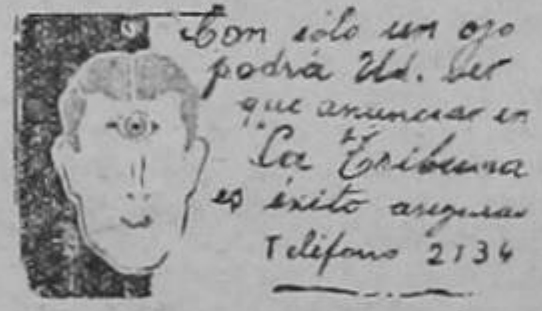 Con sólo un ojo
podrá Ud. ver
que anunciar en
"La Tribuna
es éxito asegurar
Teléfono 2134